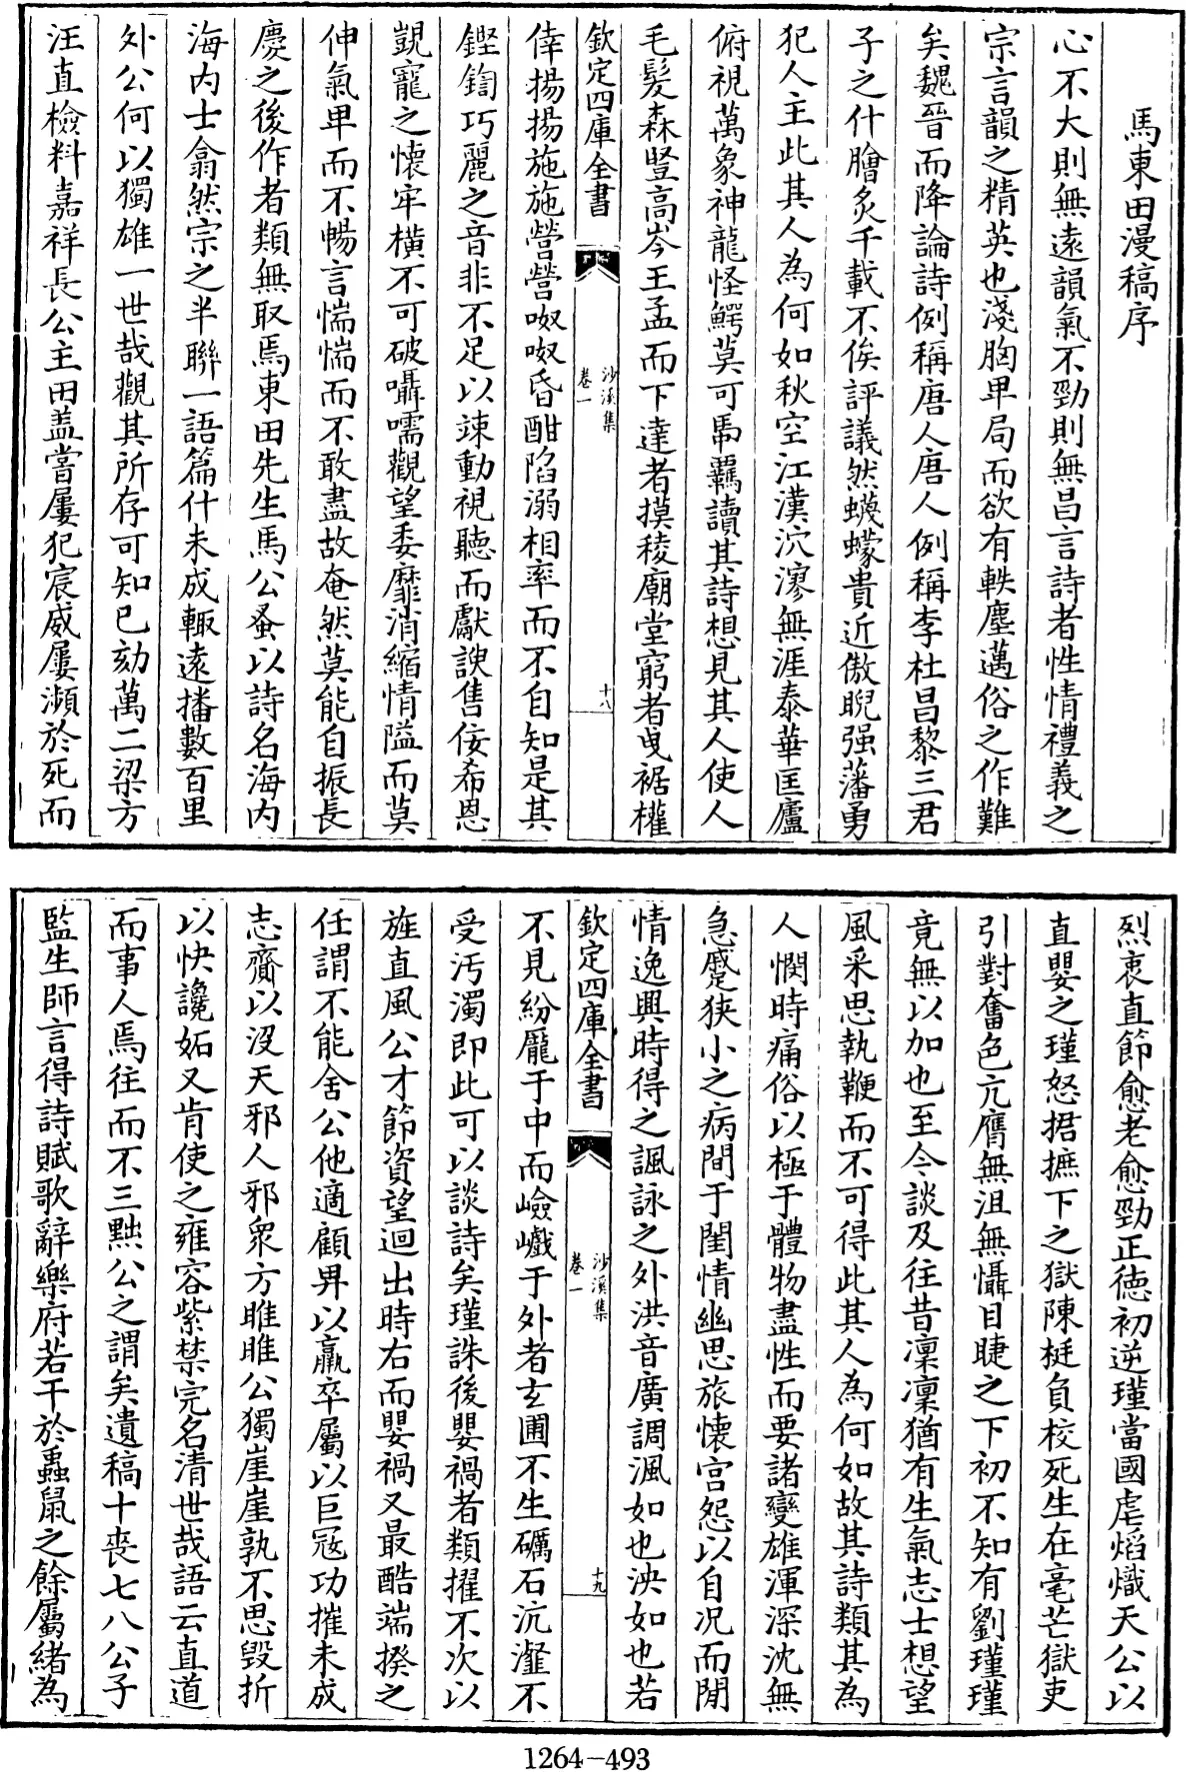 馬東田漫稿序
心不大則無遠韻氣不勁則無昌言詩者性情禮義之
宗言韻之精英也淺胸卑局而欲有軼塵邁俗之作難
矣魏晉而降論詩例稱唐人唐人例稱李杜昌黎三君
子之什膾炙千載不俟評議然蠛蠓貴近傲睨强藩勇
犯人主此其人為何如秋空江漢泬漻無涯泰華匡廬
俯視萬象神龍怪鰐莫可馽羈讀其詩想見其人使人
毛髮森豎高岑王孟而下達者摸稜廟堂窮者曵裾權
欽定四庫全書
沙溪集
卷一
十八
倖揚揚施施營營呶呶昏酣陷溺相率而不自知是其
鏗鍧巧麗之音非不足以竦動視聽而獻諛售佞希恩
覬寵之懷牢橫不可破囁嚅觀望委靡消縮情隘而莫
伸氣卑而不暢言惴惴而不敢盡故奄然莫能自振長
慶之後作者類無取焉東田先生馬公蚤以詩名海内
海内士翕然宗之半聯一語篇什未成輙遠播數百里
外公何以獨雄一世哉觀其所存可知已劾萬二梁方
汪直檢料嘉祥長公主田盖嘗屢犯宸威屢瀕於死而
烈衷直節愈老愈勁正德初逆瑾當國虐焰熾天公以
直嬰之瑾怒捃摭下之獄陳梃負校死生在毫芒獄吏
引對奮色亢膺無沮無懾目睫之下初不知有劉瑾瑾
竟無以加也至今談及往昔凜凜猶有生氣志士想望
風采思執鞭而不可得此其人為何如故其詩類其為
人憫時痛俗以極于體物盡性而要諸變雄渾深沈無
急蹙狹小之病間于閨情幽思旅懷宫怨以自况而閒
情逸興時得之諷詠之外洪音廣調渢如也泱如也若
欽定四庫全書
沙溪集
卷一
十九
不見紛厖于中而嶮巇于外者玄圃不生礪石沆瀣不
受汚濁即此可以談詩矣瑾誅後嬰禍者類擢不次以
旌直風公才節資望迴出時右而嬰禍又最酷端揆之
任謂不能舍公他適顧畀以羸卒屬以巨冦功摧未成
志齎以沒天邪人邪衆方睢睢公獨崖崖孰不思毀折
以快讒妬又肯使之雍容紫禁完名清世哉語云直道
而事人焉往而不三黜公之謂矣遺稿十喪七八公子
監生師言得詩賦歌辭樂府若干於蟲鼠之餘屬緒為
1264-493